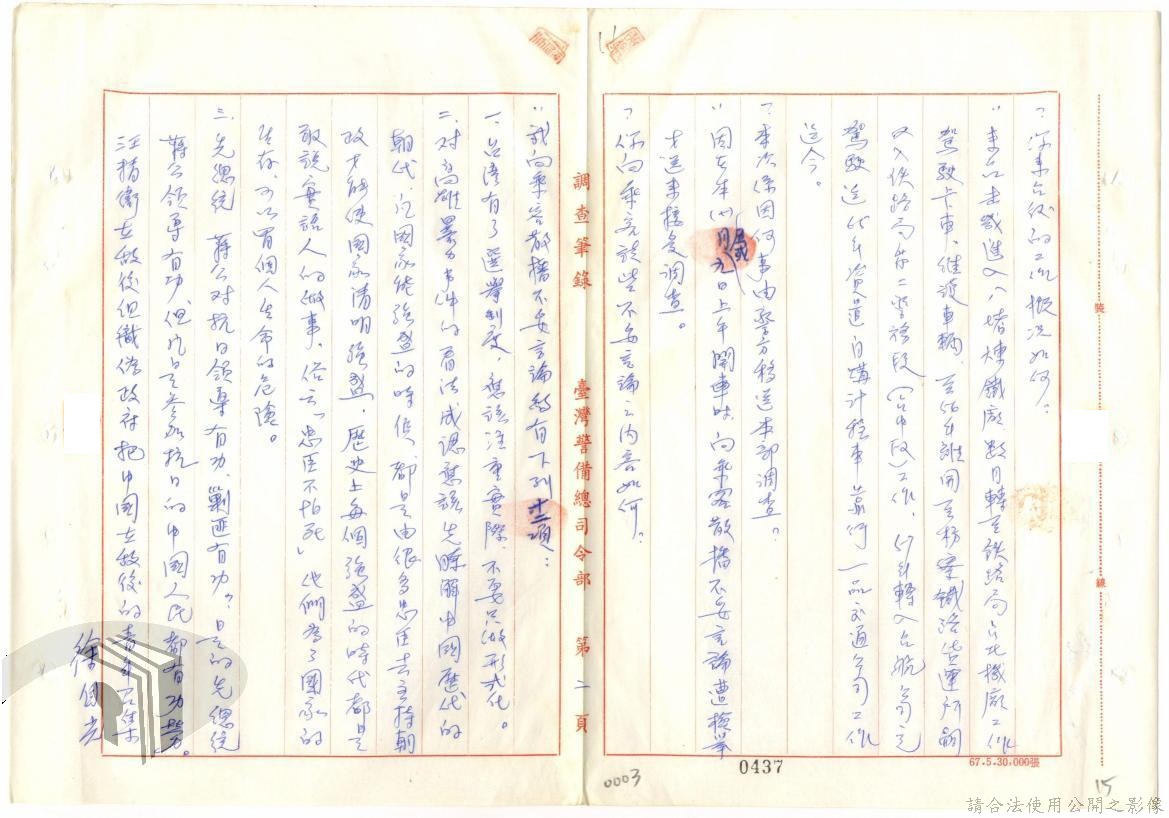 ？你來台後的工作概況如何？
：來台未幾進入八堵煉鐵廠數月轉至鐵路局台北機廠工作
駕駛卡車、維護車輛、至56年離開至枋寮鐵路貨運所嗣
又入鐵路局第二警務段（台中段）工作，57年轉入台航公司
駕駛迄65年資遣自購計程車靠行一品交通公司工作
迄今。
？本次係因何事由警方移送本部調查？
：因在本（ ）月九日上午開車時向乘客散播不妥言論遭檢舉
才送來接受調查。
？你向乘客談些不妥言論之內容如何？
調查筆錄 臺灣警備總司令部 第二頁
：我向乘客散播不妥言論約有下列十二項：
一、台灣有了選舉制度，應該注重實際，不要只做形式化。
二、对高雄暴力事件的看法成認應該先瞭解中國歷代的
朝代，凡國家能強盛的時候，都是由很多忠臣去主持朝
政才能使國家清明強盛，歷史上每個強盛的時代都是
敢說實話人的做事，俗云「忠臣不怕死」他們為了國家的
生存，可以冒個人生命的危險。
三、先總統 蔣公对抗日領導有功、剿匪有功？是的先總統
蔣公領導有功，但凡是參加抗日的中國人民都有功勞。
汪精衛在敵後組織偽政府把中國在敵後的青年召集
裝
線
0437
67.5.30,000張
0003
15
請合法使用公開之影像